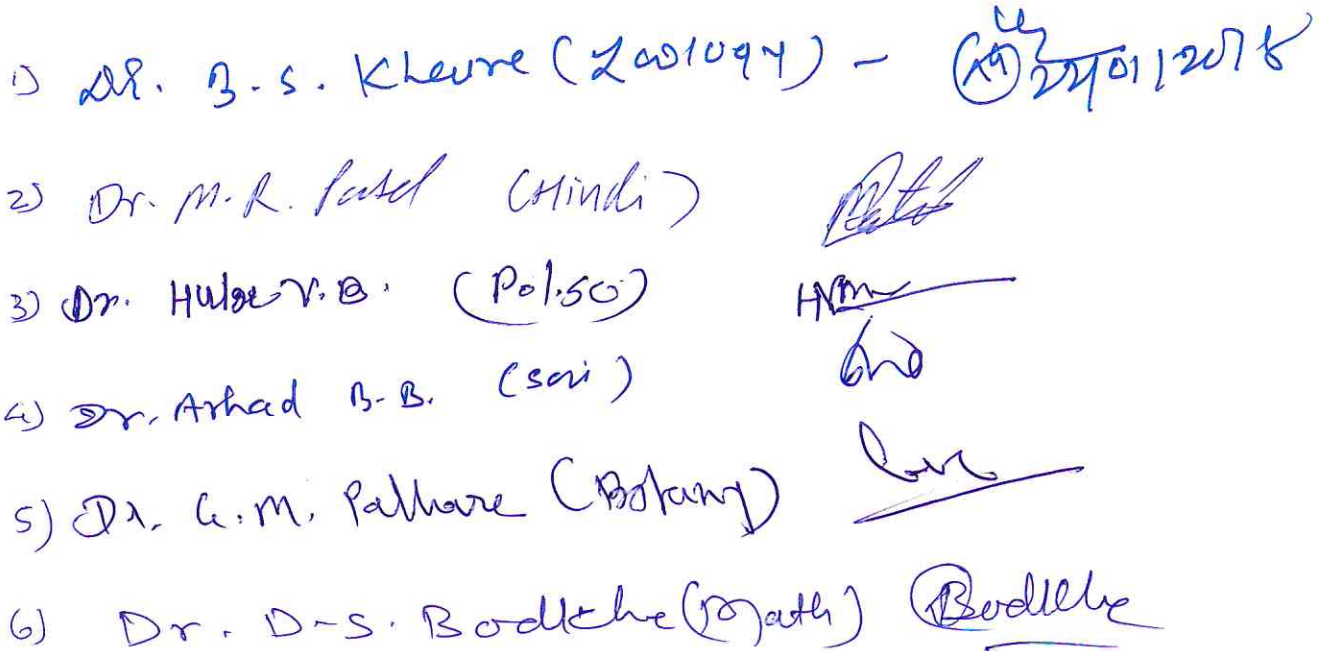 1) Dr. B.S. Khevre (Zoology) - 22/01/2018
2) Dr. M.R. Patel (Hindi)
3) Dr. Hulge V.B. (Pol.sc)
4) Dr. Arhad B.B. (Soci)
5) Dr. G.M. Palhare (Botany)
6) Dr. D-S. Bodkhe (Math) Bodkhe